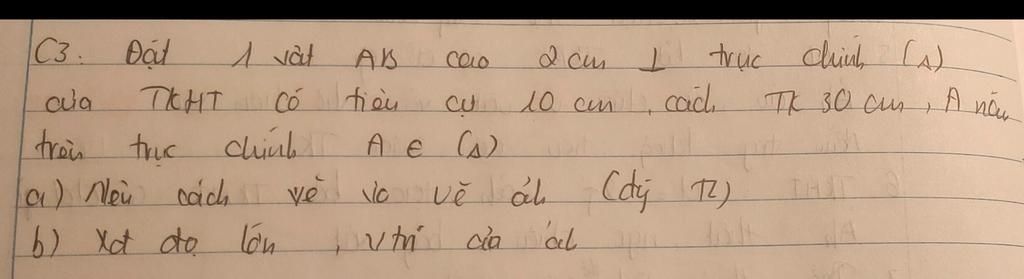 C3. Đặt 1 vật AB cao 2 cm ⊥ trục chính (Δ)
của TKHT có tiêu cự 10 cm, cách TK 30 cm, A nằm
trên trục chính A ∈ (Δ)
a) Nêu cách vẽ và vẽ ảh (đý TL)
b) Xđ độ lớn, vtrí của ảh